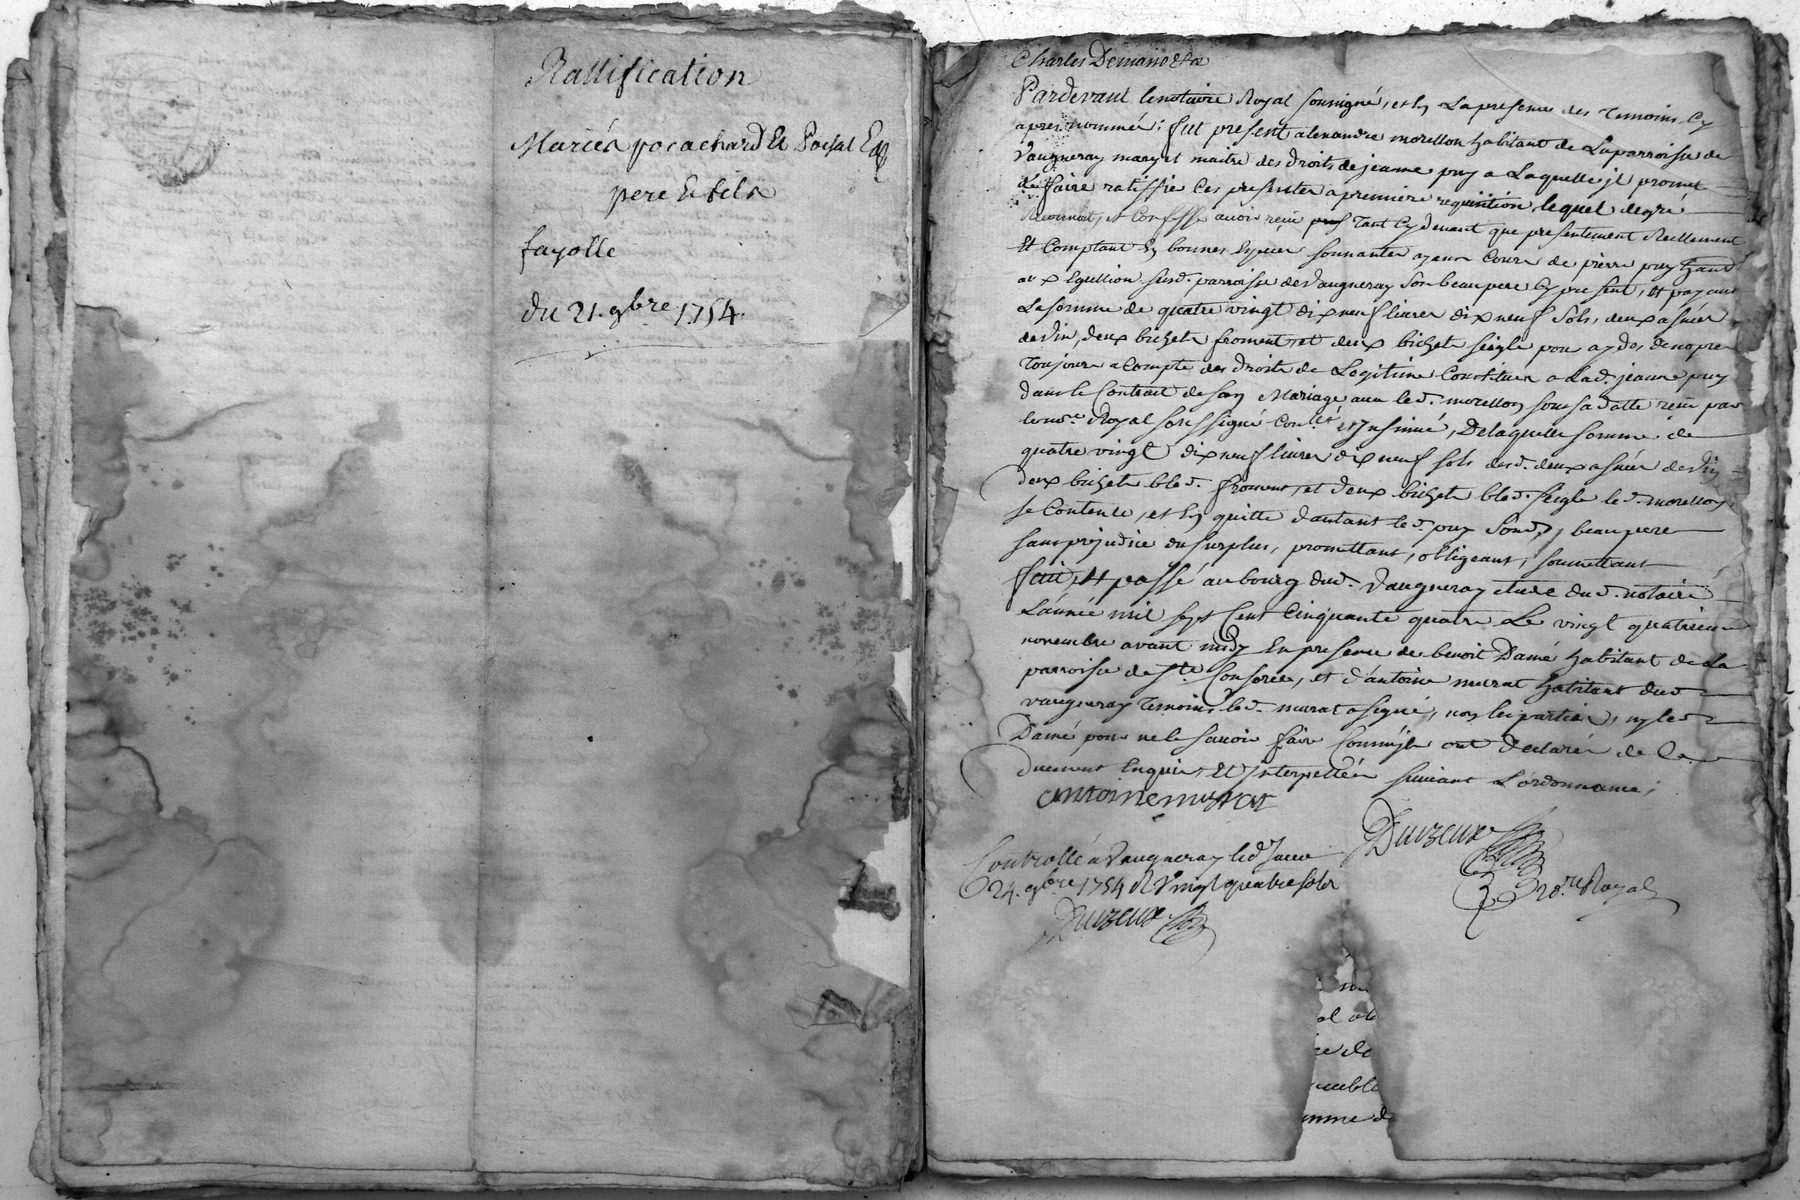 Rattification
Mariés pocachard Et Poisat
pere Et fils
fayolle
du 21. 9bre 1754.
Charles Demano &a
Pardevant le notaire Royal soussigné, et En La presence des Temoins Cy
apres nommés; fut present alexandre morellon habitant de La parroisse de
Vaugneray mary et maitre des droits de jeanne puy a Laquelle jl promet
de faire ratiffié Ces presentes a premiere requisition, lequel de gré
Reconnoit, et Confesse avoir reçu Tant Cy devant que presentement Reellement
Et Comptant En bonnes Especes sonnantes ayans Cours de pierre puy
susd. parroisse de Vaugneray Son beaupere Cy present, Et payant
La somme de quatre vingt dix neuf livres dix neuf Sols, deux asnées
de Vin, deux bichets froment, et deux bichets seigle
Toujours a Compte des droits de Legitime Constitués a Lad. jeanne puy
dans le Contrat de son Mariage avec led. morellon sous sa datte reçu par
le no.re Royal soussigné Con.lé et Insinué, De laquelle somme de
quatre vingt dix neuf livres dix neuf sols desd. deux asnées de Vin
deux bichets bled. froment, et deux bichets bled. seigle led. morellon
se Contente, et En quitte d'autant led. puy Sond. beaupere
sans prejudice du surplus, promettant, obligeant, soumettant
fait Et passé au bourg dud. Vaugneray etude dud. notaire
L'année mil sept Cent Cinquante quatre Le vingt quatrieme
novembre avant midy En presence de benoit Damé habitant de La
parroisse de Ste Consorce, et d'antoine murat habitant dud
vaugneray Temoins led. murat a signé, non les parties, ny led
Damé pour ne le savoir faire Comm'jls ont declarés de Ce
duement Enquis Et Interpellés suivant L'ordonnance;
antoine murat
Duvzeux
Controllé a Vaugneray led. Jour
24. 9bre 1754 R vingt quatre sols
No.re Royal
Duvzeux